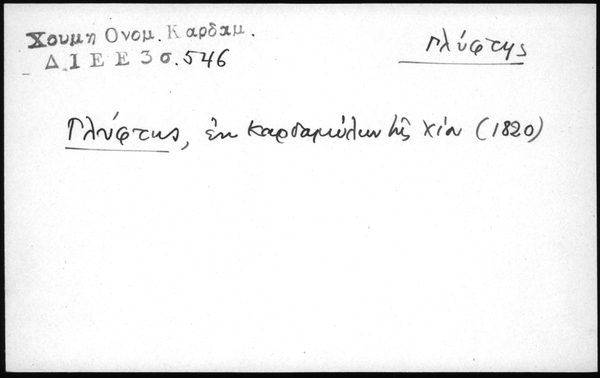 Χουμη Ονομ. Καρδαμ.
Δ Ι Ε Ε 3 σ. 546
Γλύφτης
Γλύφτης, ἐκ Καρδαμύλων τῆς Χίου (1820)